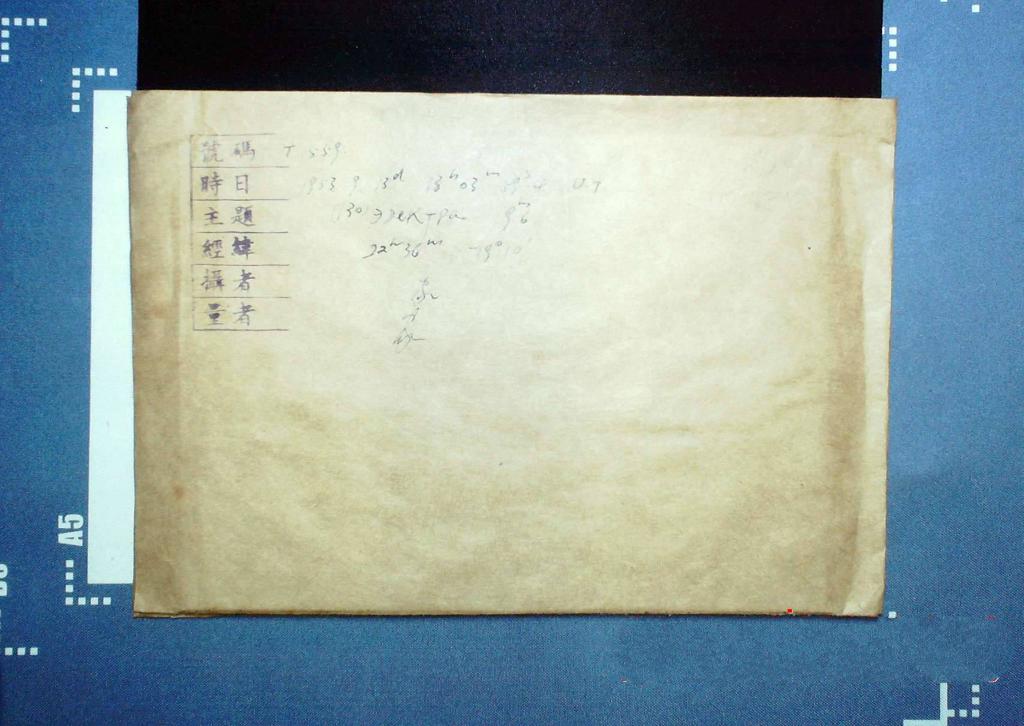 號碼 T 559.
時日 1953 9 13ᵈ 13ʰ 03ᵐ U.T
主題 (130) Электра 9ᵐ6
經緯 22ʰ 36ᵐ -19°10'
攝者
量者
A5